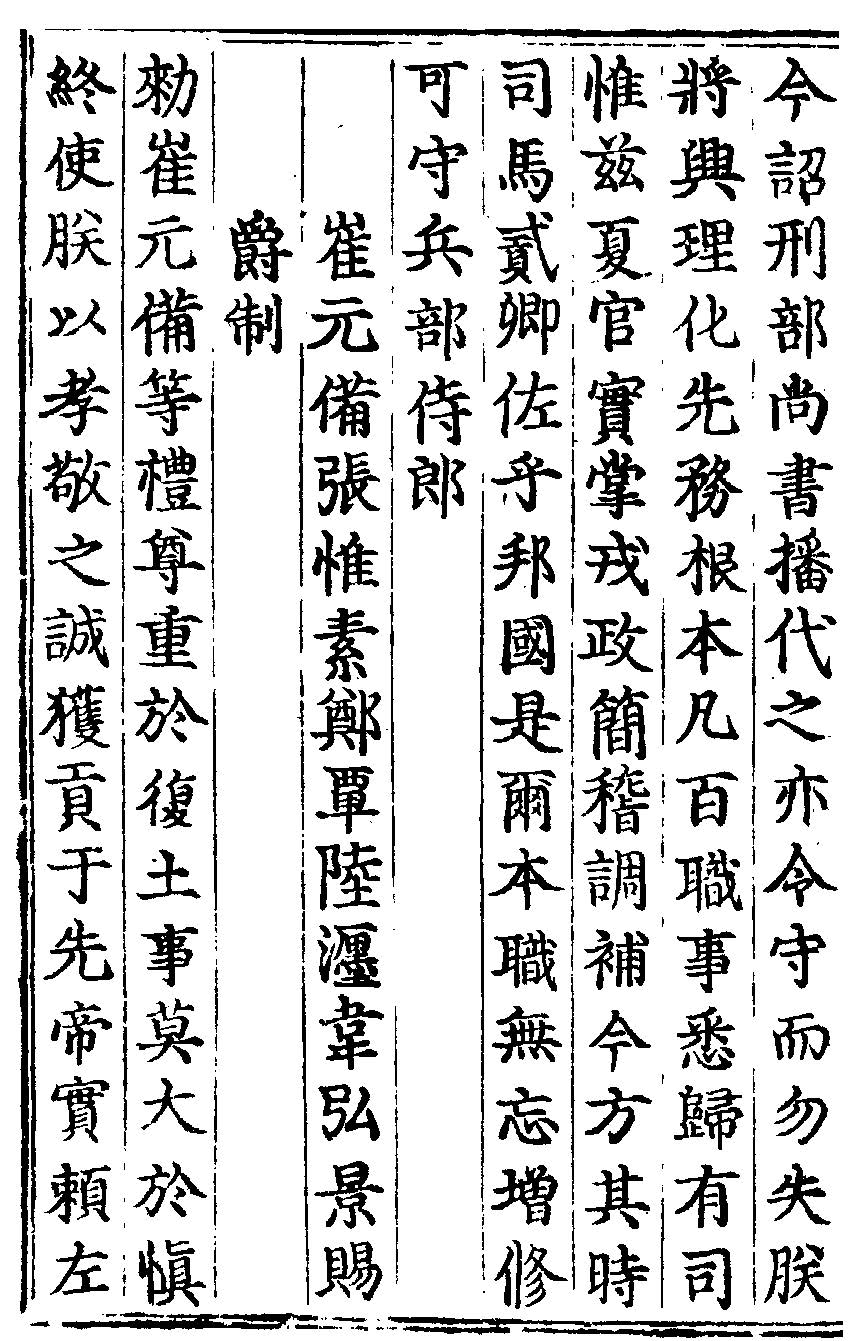 今詔刑部尚書播代之亦令守而勿失朕
將興理化先務根本凡百職事悉歸有司
惟兹夏官實掌戎政簡稽調補今方其時
司馬貳卿佐乎邦國是爾本職無忘增修
可守兵部侍郎
崔元備張惟素鄭覃陸瀍韋弘景賜
爵制
勑崔元備等禮尊重於復土事莫大於慎
終使朕以孝敬之誠獲貢于先帝實賴左